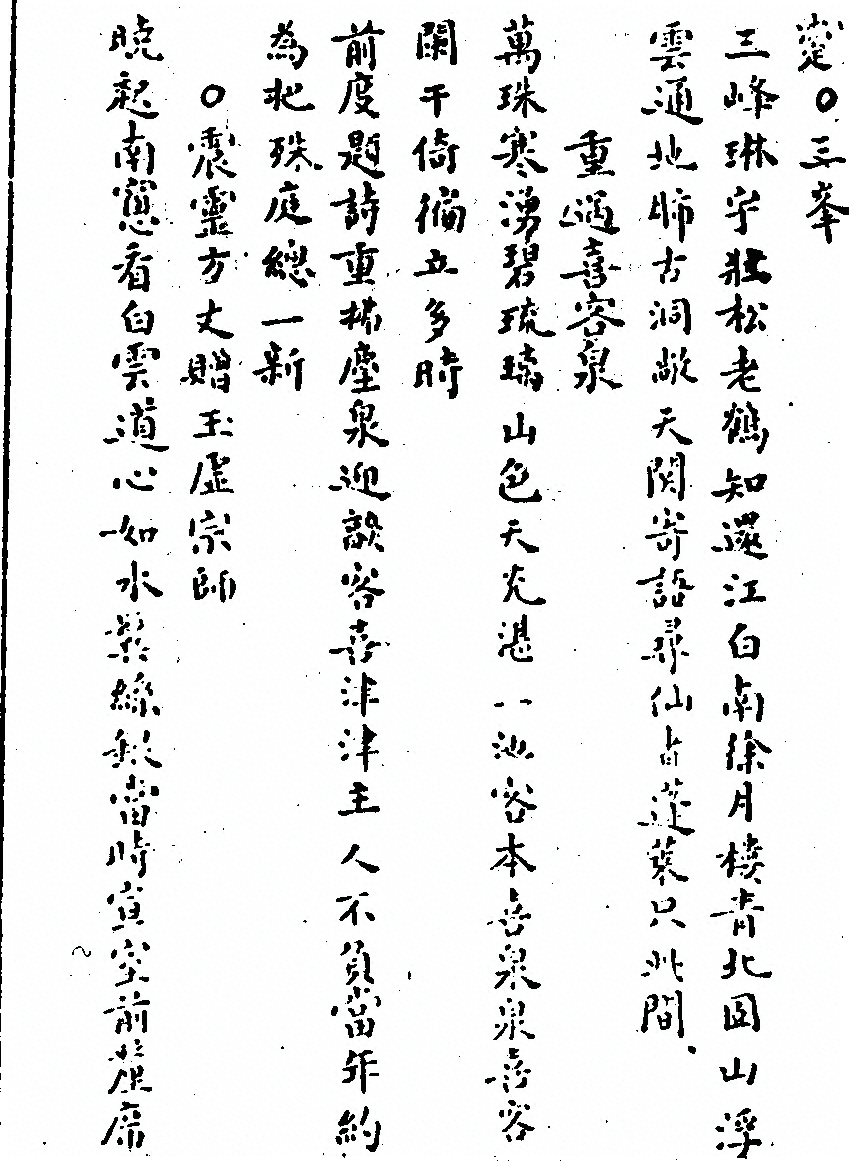 ○三峯
三峰琳宇壯松老鶴知還江白南徐月樓青北固山浮
雲通地肺古洞敞天關寄語尋仙者蓬萊只此間
重過喜客泉
萬珠寒湧碧琉璃山色天光湛一池客本喜泉泉喜客
闌干倚徧立多時
前度題詩重拂塵泉迎歡客喜津津主人不負當年約
為把珠庭總一新
○震靈方丈贈玉虛宗師
曉起南窻看白雲道心如水鬂絲銀當時宣室前席